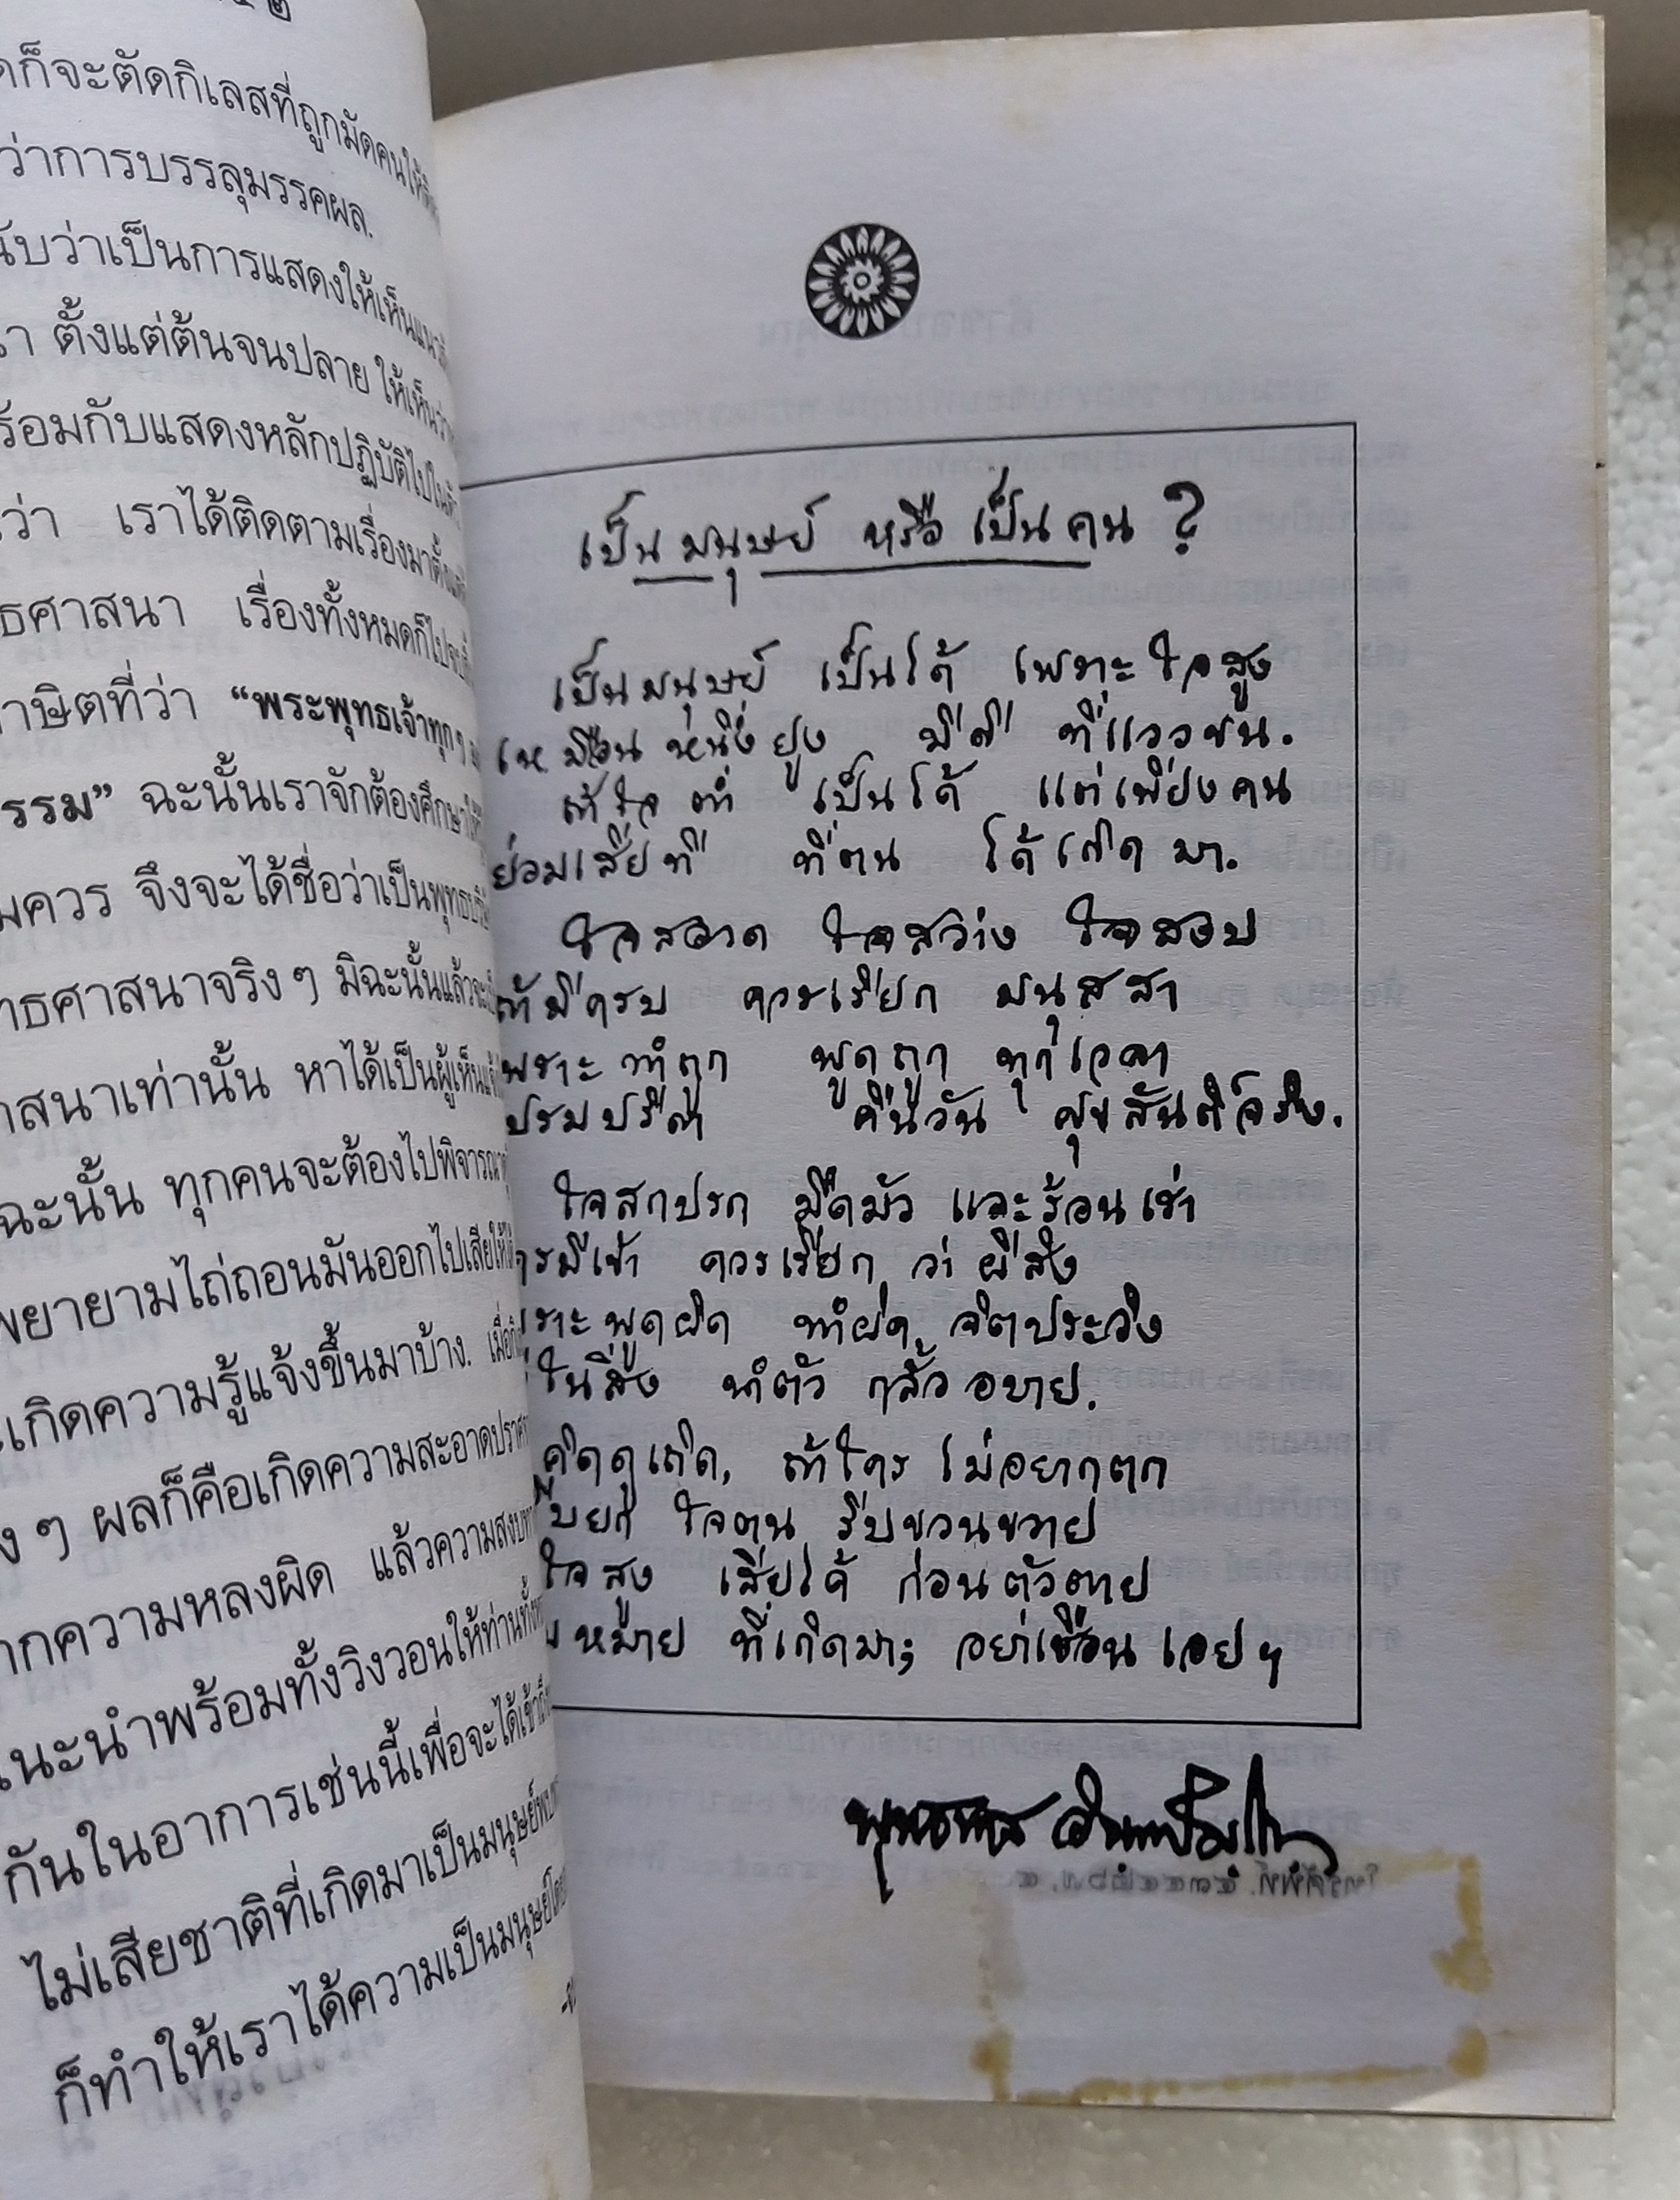 ก็จะตัดกิเลสที่ถูกมัดคนให้
ว่าการบรรลุมรรคผล.
นับว่าเป็นการแสดงให้เห็นแนว
ตั้งแต่ต้นจนปลาย ให้เห็นว่า
ร้อมกับแสดงหลักปฏิบัติไปใน
ว่า เราได้ติดตามเรื่องมาตั้งแต่
ธศาสนา เรื่องทั้งหมดก็ไปจบ
าษิตที่ว่า “พระพุทธเจ้าทุกๆ
รรม” ฉะนั้นเราจักต้องศึกษาให้
มควร จึงจะได้ชื่อว่าเป็นพุทธบริษั
ทธศาสนาจริงๆ มิฉะนั้นแล้วจะเป็
าสนาเท่านั้น หาได้เป็นผู้เห็นแจ้
ฉะนั้น ทุกคนจะต้องไปพิจารณา
พยายามไถ่ถอนมันออกไปเสียให้ได้
เกิดความรู้แจ้งขึ้นมาบ้าง. เมื่อ
ง ๆ ผลก็คือเกิดความสะอาดปราศ
ากความหลงผิด แล้วความสงบ
นะนำพร้อมทั้งวิงวอนให้ท่านทั้ง
กันในอาการเช่นนี้เพื่อจะได้เข้าถึง
ไม่เสียชาติที่เกิดมาเป็นมนุษย์พบ
ก็ทำให้เราได้ความเป็นมนุษย์โดย
เป็นมนุษย์ หรือ เป็นคน ?
เป็นมนุษย์ เป็นได้ เพราะใจสูง
เหมือนหนึ่งยูง มีดี ที่แววขน.
ถ้าใจต่ำ เป็นได้ แต่เพียงคน
ย่อมเสียที ที่ตน ได้เกิดมา.
ใจสอาด ใจสว่าง ใจสงบ
ถ้ามีครบ ควรเรียก มนุสสา
พราะทำถูก พูดถูก ทุกเวลา
ปรมปรีดา คืนวัน ศุขสันติ์จริง.
ใจสกปรก มืดมัว และร้อนเร่า
ครมีเข้า ควรเรียก ว่าผีสิง
ราะพูดผิด ทำผิด จิตประวิง
ในสิ่ง นำตัว กลั้วอบาย.
คิดดูเถิด, ถ้าใคร ไม่อยากตก
บยก ใจตน รีบขวนขวาย
ใจสูง เสียได้ ก่อนตัวตาย
หมาย ที่เกิดมา; อย่าเชือนเอยฯ
พุทธทาส อินทปัญโญ